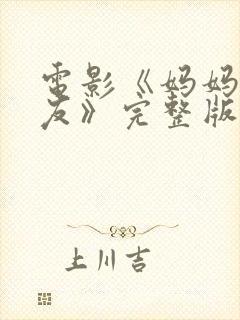 電影《妈妈
友》完整版
上川吉